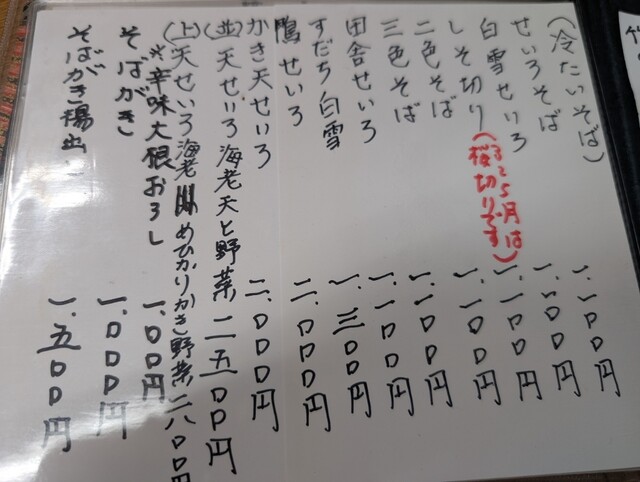 (冷たいそば)
せいろそば 一、一〇〇円
白雪せいろ 一、一〇〇円
しそ切り(3と5月は桜切りです) 一、一〇〇円
二色そば 一、一〇〇円
三色そば 一、一〇〇円
田舎せいろ 一、一〇〇円
すだち白雪 一、三〇〇円
鴨せいろ 二、〇〇〇円
かき天せいろ 二、〇〇〇円
(並)天せいろ 海老天と野菜 二五〇〇円
(上)天せいろ 海老 めひかりかき野菜 二八〇〇円
※辛味大根おろし 一〇〇円
そばがき 一、〇〇〇円
そばがき揚出し 一、五〇〇円